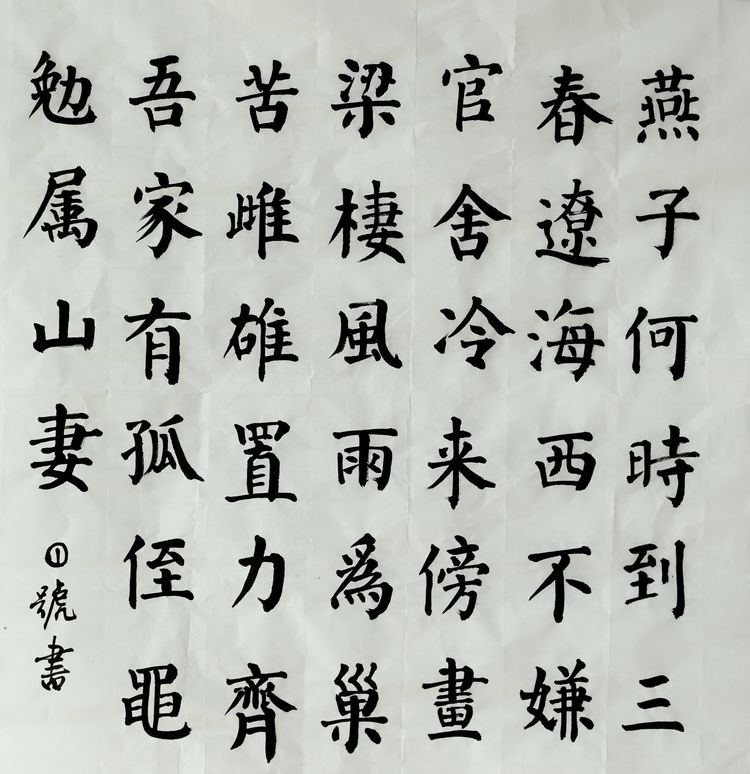 燕子何時到三
春遼海西不嫌
官舍冷来傍畫
梁棲風雨為巢
苦雌雄置力齊
吾家有孤侄黽
勉属山妻
①號書